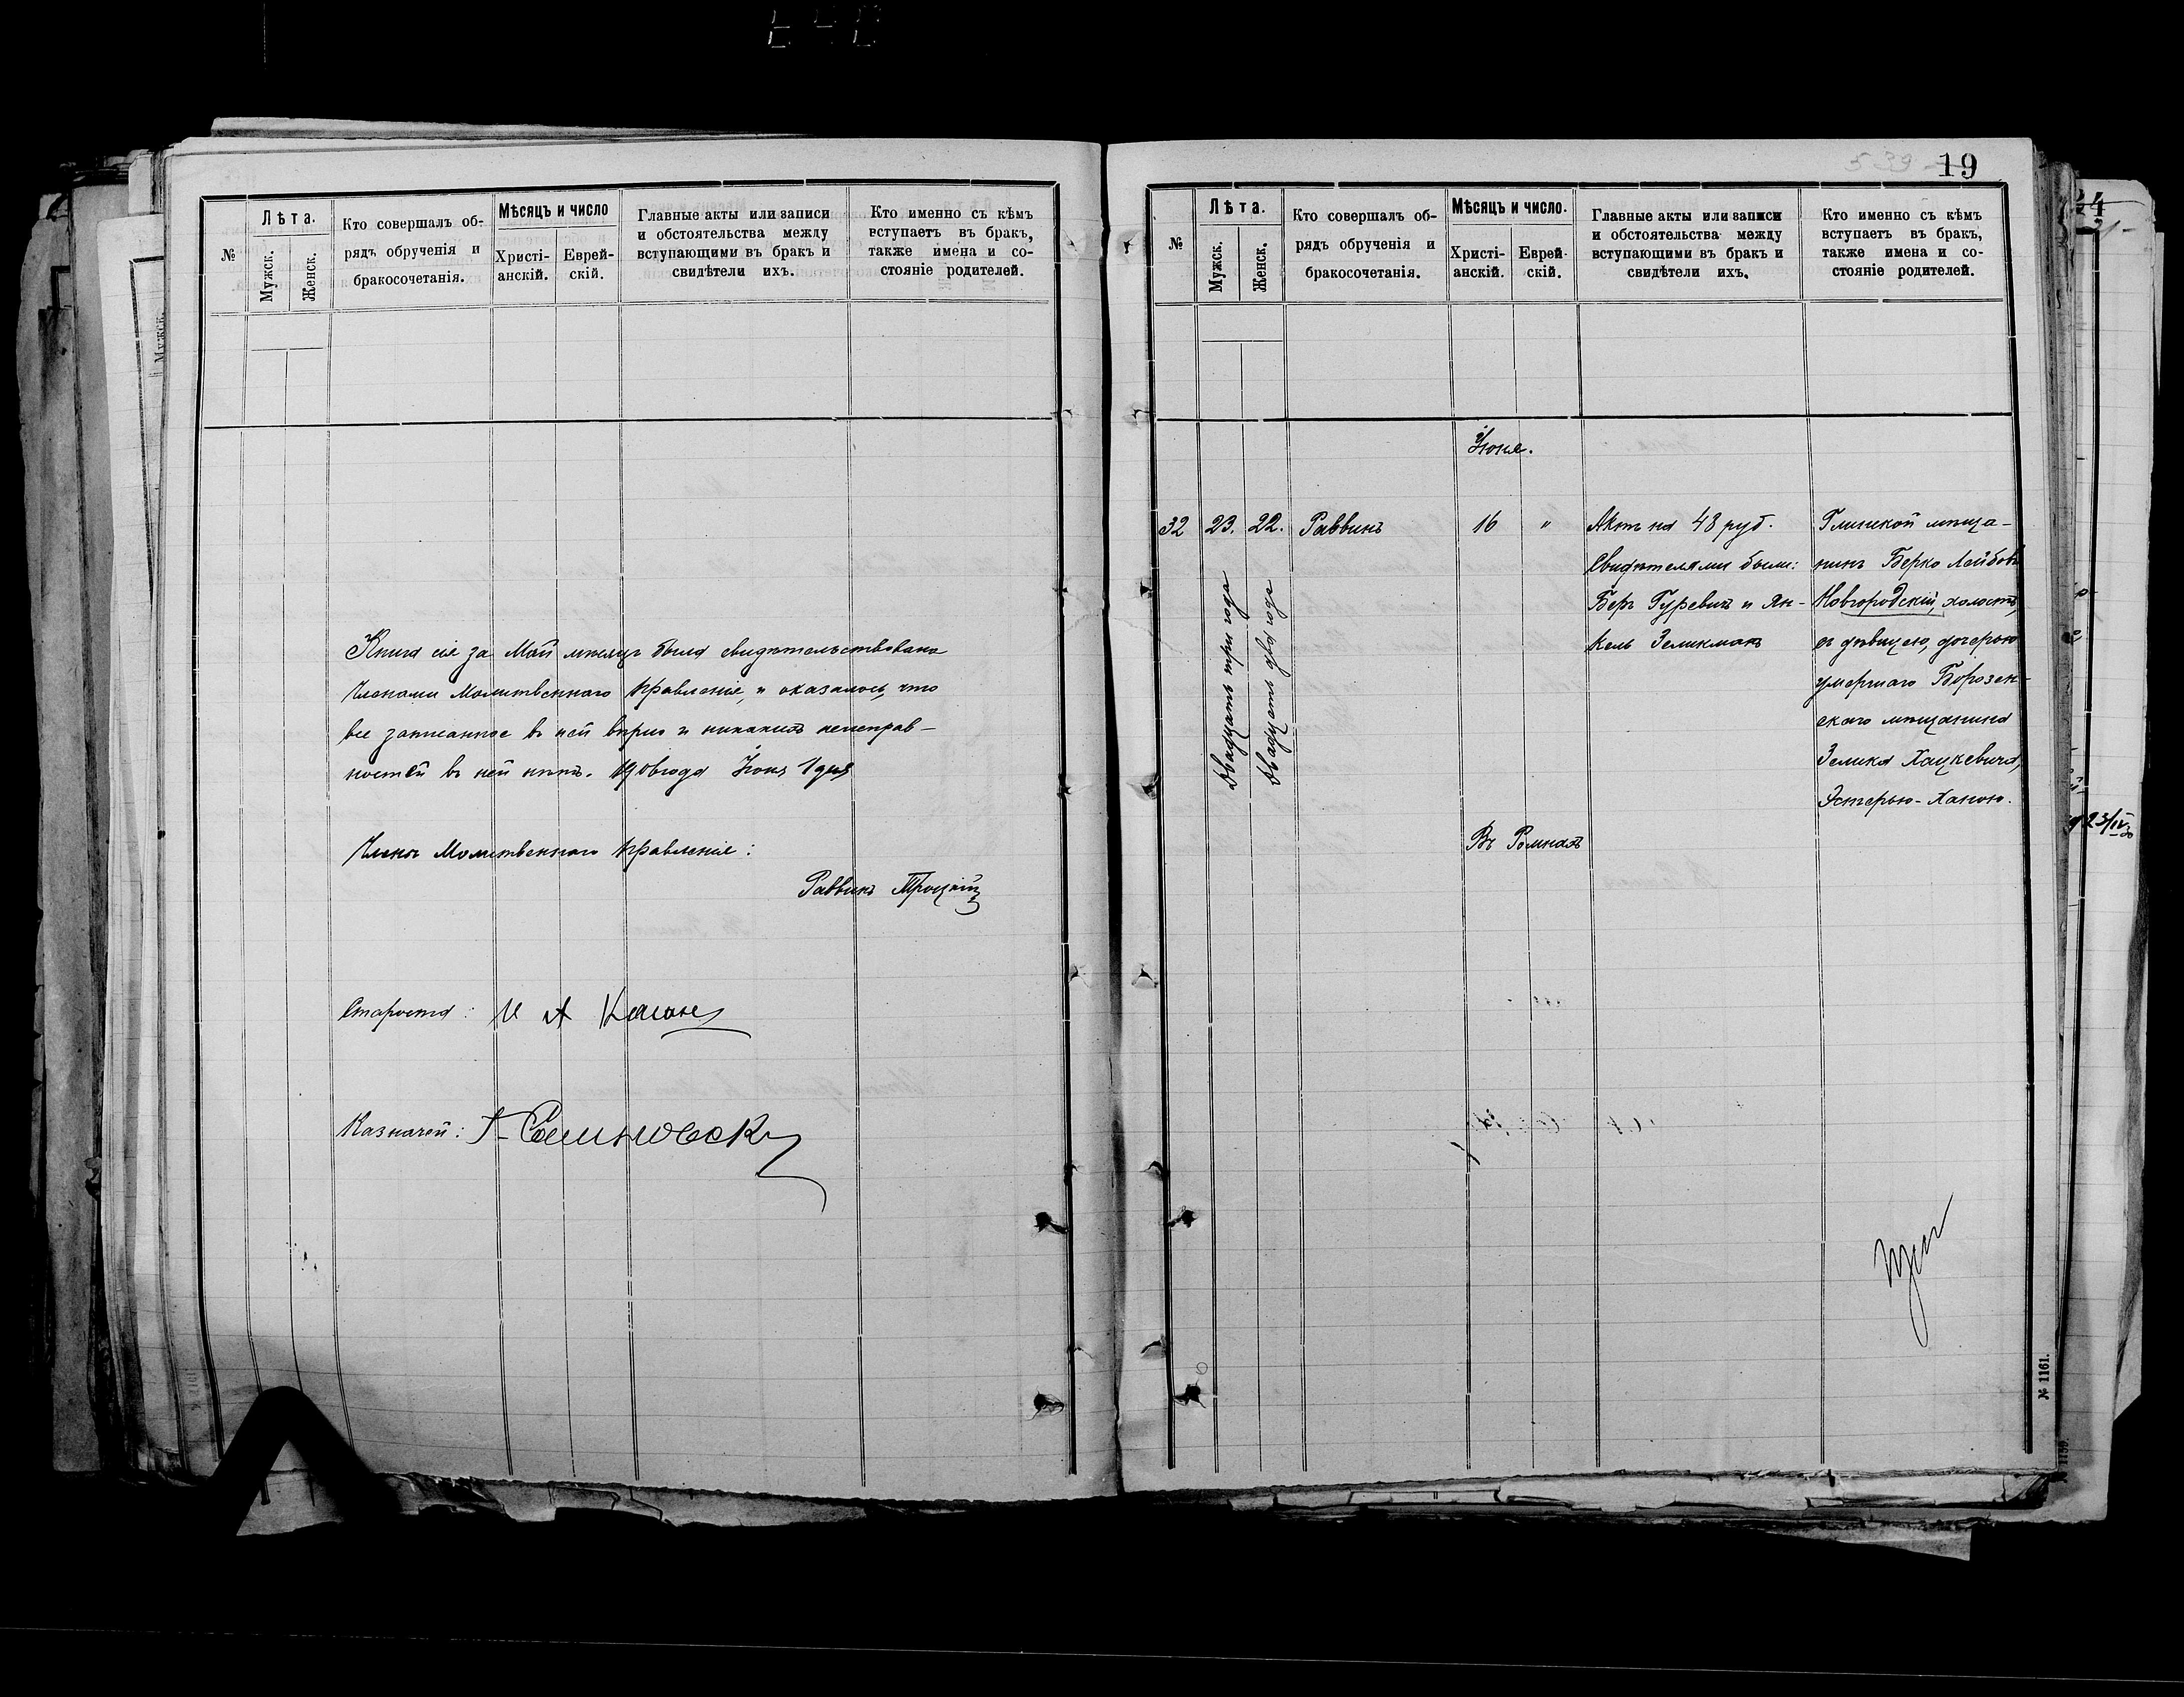 №
Лѣта.
Мужск.
Женск.
Кто совершалъ об-
рядъ обрученія и
бракосочетанія.
Мѣсяцъ и число
Христі-
анскій.
Еврей-
скій.
Главные акты или записи
и обстоятельства между
вступающими въ бракъ и
свидѣтели ихъ.
Кто именно съ кѣмъ
вступаетъ въ бракъ,
также имена и со-
стояніе родителей.
Книга сія за Май мѣсяцъ была свидѣтельствована
Членами Молитвеннаго Правленія, и оказалось, что
все записанное въ ней вѣрно и никакихъ неисправ-
ностей въ ней нѣтъ. Іюня 1 дня
Члены Молитвеннаго Правленія:
Раввинъ Троцкій
Староста: И А Каганъ
Казначей:
19
№
Лѣта.
Мужск.
Женск.
Кто совершалъ об-
рядъ обрученія и
бракосочетанія.
Мѣсяцъ и число.
Христі-
анскій.
Еврей-
скій.
Главные акты или записи
и обстоятельства между
вступающими въ бракъ и
свидѣтели ихъ.
Кто именно съ кѣмъ
вступаетъ въ бракъ,
также имена и со-
стояніе родителей.
Іюня.
32
23.
22.
Двадцать три года
Двадцать два года
Раввинъ
16
"
Актъ на 48 руб.
Свидѣтелями были:
Беръ Гуревичъ и Ян-
кель Зеликманъ
Глинской мѣща-
нинъ Берко Лейбовъ
Новгородскій, холостъ,
съ дѣвицею, дочерью
умершаго Борозен-
скаго мѣщанина
Зелика Хацкевича,
Эстерью-Ханою.
Въ Ромнахъ
№ 1161.